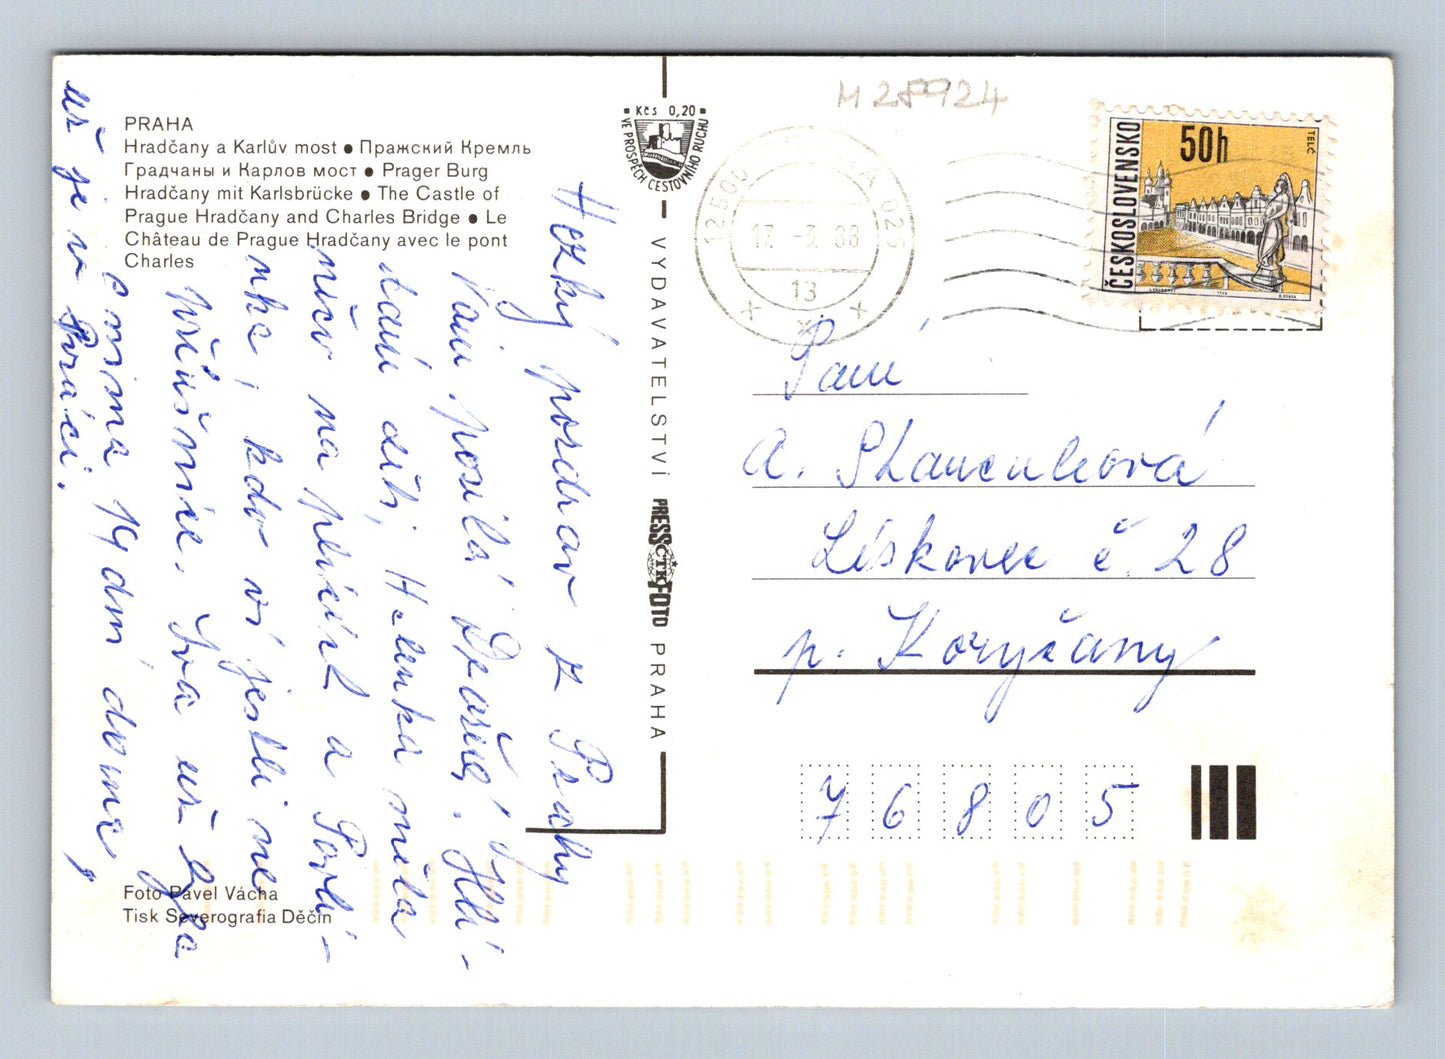 PRAHA
Hradčany a Karlův most ● Пражский Кремль
Градчаны и Карлов мост ● Prager Burg
Hradčany mit Karlsbrücke ● The Castle of
Prague Hradčany and Charles Bridge ● Le
Château de Prague Hradčany avec le pont
Charles
Hezký pozdrav z Prahy
Vám posílá Hlí-
dání dětí, Helenka měla
něco na plících a Pavlí-
nka, kdo ví jestli ne
příušnice. Iva už byla
doma,
už je v práci.
Foto Pavel Vácha
Tisk Severografia Děčín
Kčs 0,20
VE PROSPĚCH CESTOVNÍHO RUCHU
VYDAVATELSTVÍ PRESSFOTO PRAHA
ČTK
M 28924
12500 025
17.-3. 88
13
ČESKOSLOVENSKO
50h
TELČ
Paní
A.
Lískovec č. 28
p. Koryčany
76805